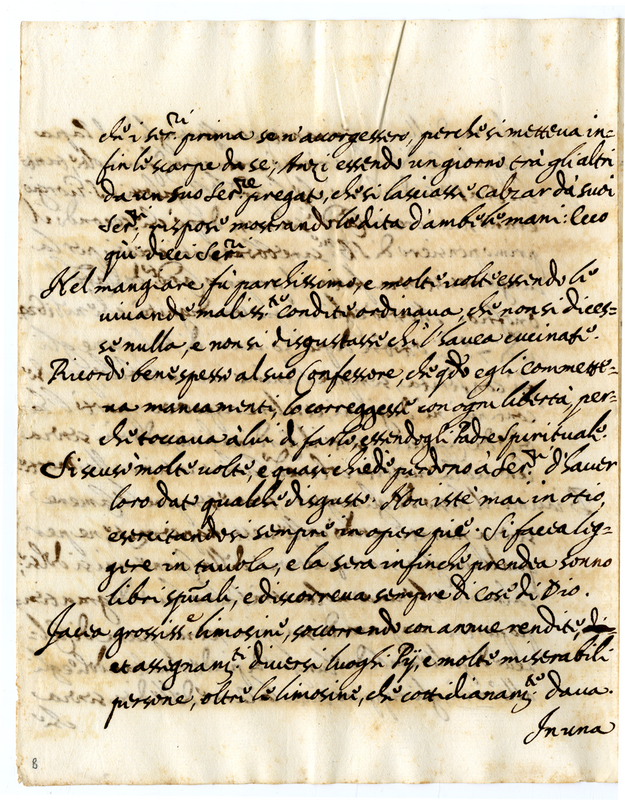 che i ser.ri prima se n'accorgessero, perche si metteva in=
fin le scarpe da se; Anzi essendo un giorno trà gli altri
da un suo Ser.re pregato, che si lasciasse calzar dà suoi
Ser.ri, rispose mostrando le dita d'ambe le mani: Ecco
qui dieci Ser.ri
Nel mangiare fù parchissimo, e molte volte essendo le
vivande maliss.te condite ordinava, che non si dices=
se nulla, e non si disgustasse chi l'havea cucinate.
Ricordò bene spesso al suo Confessore, che qdo egli commette=
va mancamenti, lo correggesse con ogni libertà, per=
che toccava à lui di farlo, essendogli Padre Spirituale.
Si scusò molte volte, e quasi chiedè perdono à Ser.ri d'haver
loro dato qualche disgusto. Non istè mai in otio,
esercitandosi sempre in opere pie. Si facea leg=
gere in tavola, e la sera infinche prendea sonno
libri spuali, e discorreva sempre di cose di Dio.
Facea grossiss.e limosine, soccorrendo con annue rendite,
et assegnam.ti diversi luoghi Pij, e molte miserabili
persone, oltre le limosine, che cottidianam.te dava.
In una
8